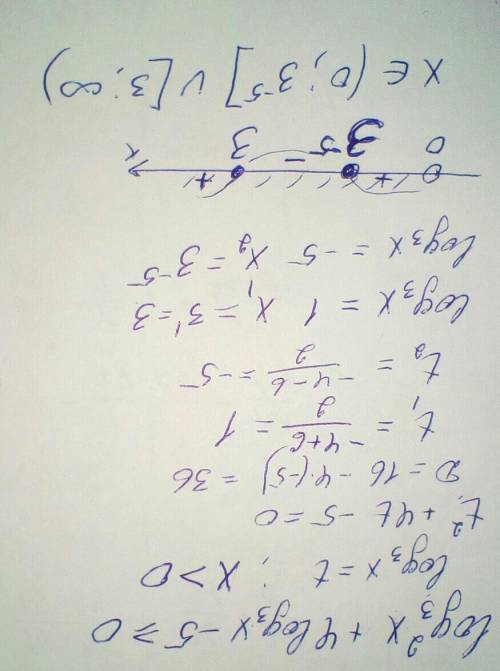 log₃²x + 4log₃x - 5 ≥ 0
log₃x = t ; x > 0
t² + 4t - 5 = 0
D = 16 - 4·(-5) = 36
t₁ = (-4+6)/2 = 1
t₂ = (-4-6)/2 = -5
log₃x = 1 x₁ = 3¹ = 3
log₃x = -5 x₂ = 3⁻⁵
+ - +
0 3⁻⁵ 3 x
x ∈ (0; 3⁻⁵] ∪ [3; ∞)